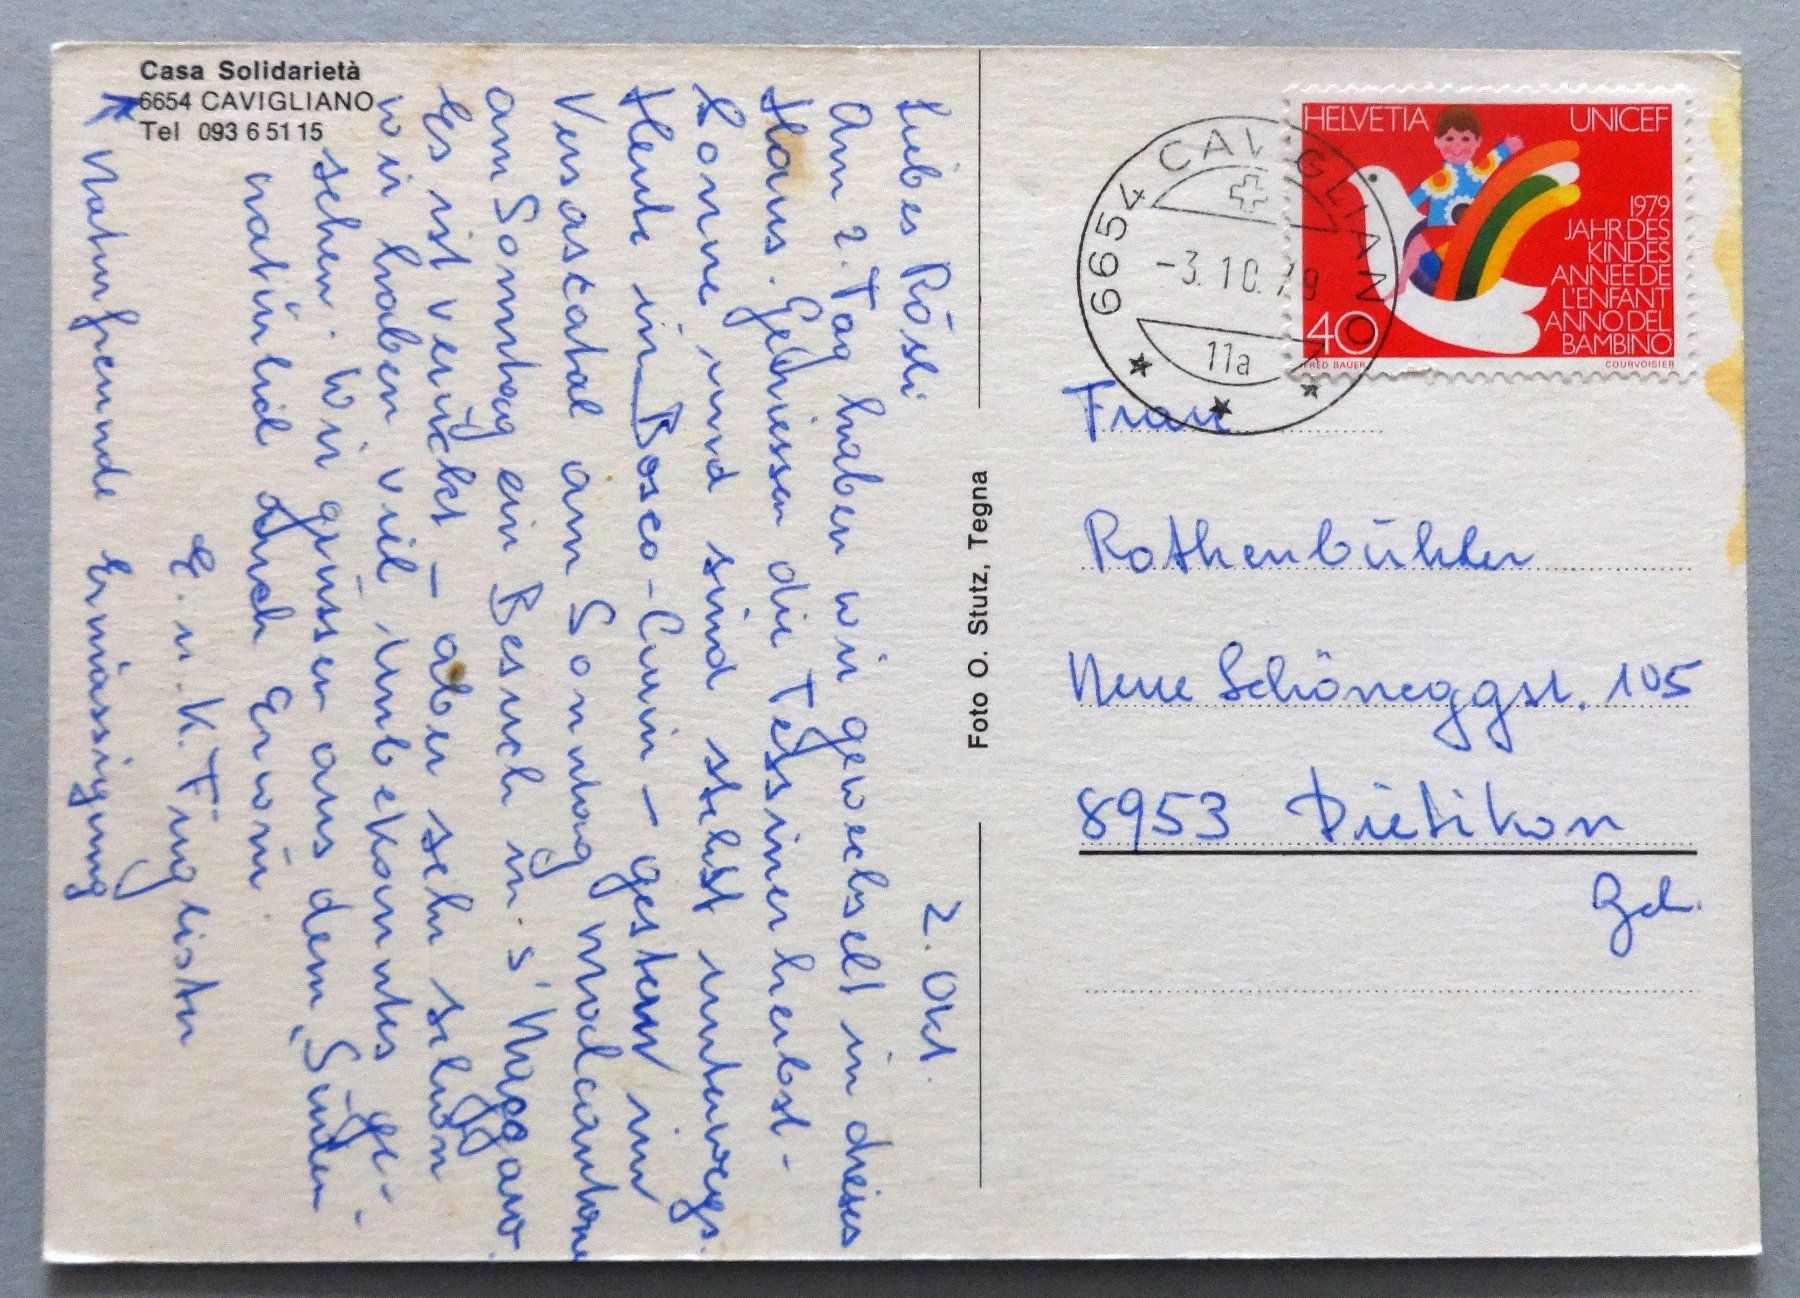 Casa Solidarietà
6654 CAVIGLIANO
Tel 093 6 51 15
2. Okt.
Liebes Rösli
Am 2. Tag haben wir gewechselt in dieses
Haus. Geniessen die Tessinerherbst-
Sonne und sind stehst unterwegs.
Heute in Bosco-Gurin – gestern im
Versascatal am Sonntag
am Sonntag ein Besuch in s'
Es ist verückt – aber sehr schön
wir haben viel Unbekanntes ge-
sehen. Wir grüssen aus dem „Süden"
natürlich auch Erwin.
E. u. K. Finglistn
Naturfreunde Ermässigung
Foto O. Stutz, Tegna
6654 CAVIGLIANO
-3.10.79
11a
HELVETIA UNICEF
1979
JAHR DES
KINDES
ANNEE DE
L'ENFANT
ANNO DEL
BAMBINO
40
FRED BAUER COURVOISIER
Frau
Rothenbühler
Neue Schöneggst. 105
8953 Dietikon